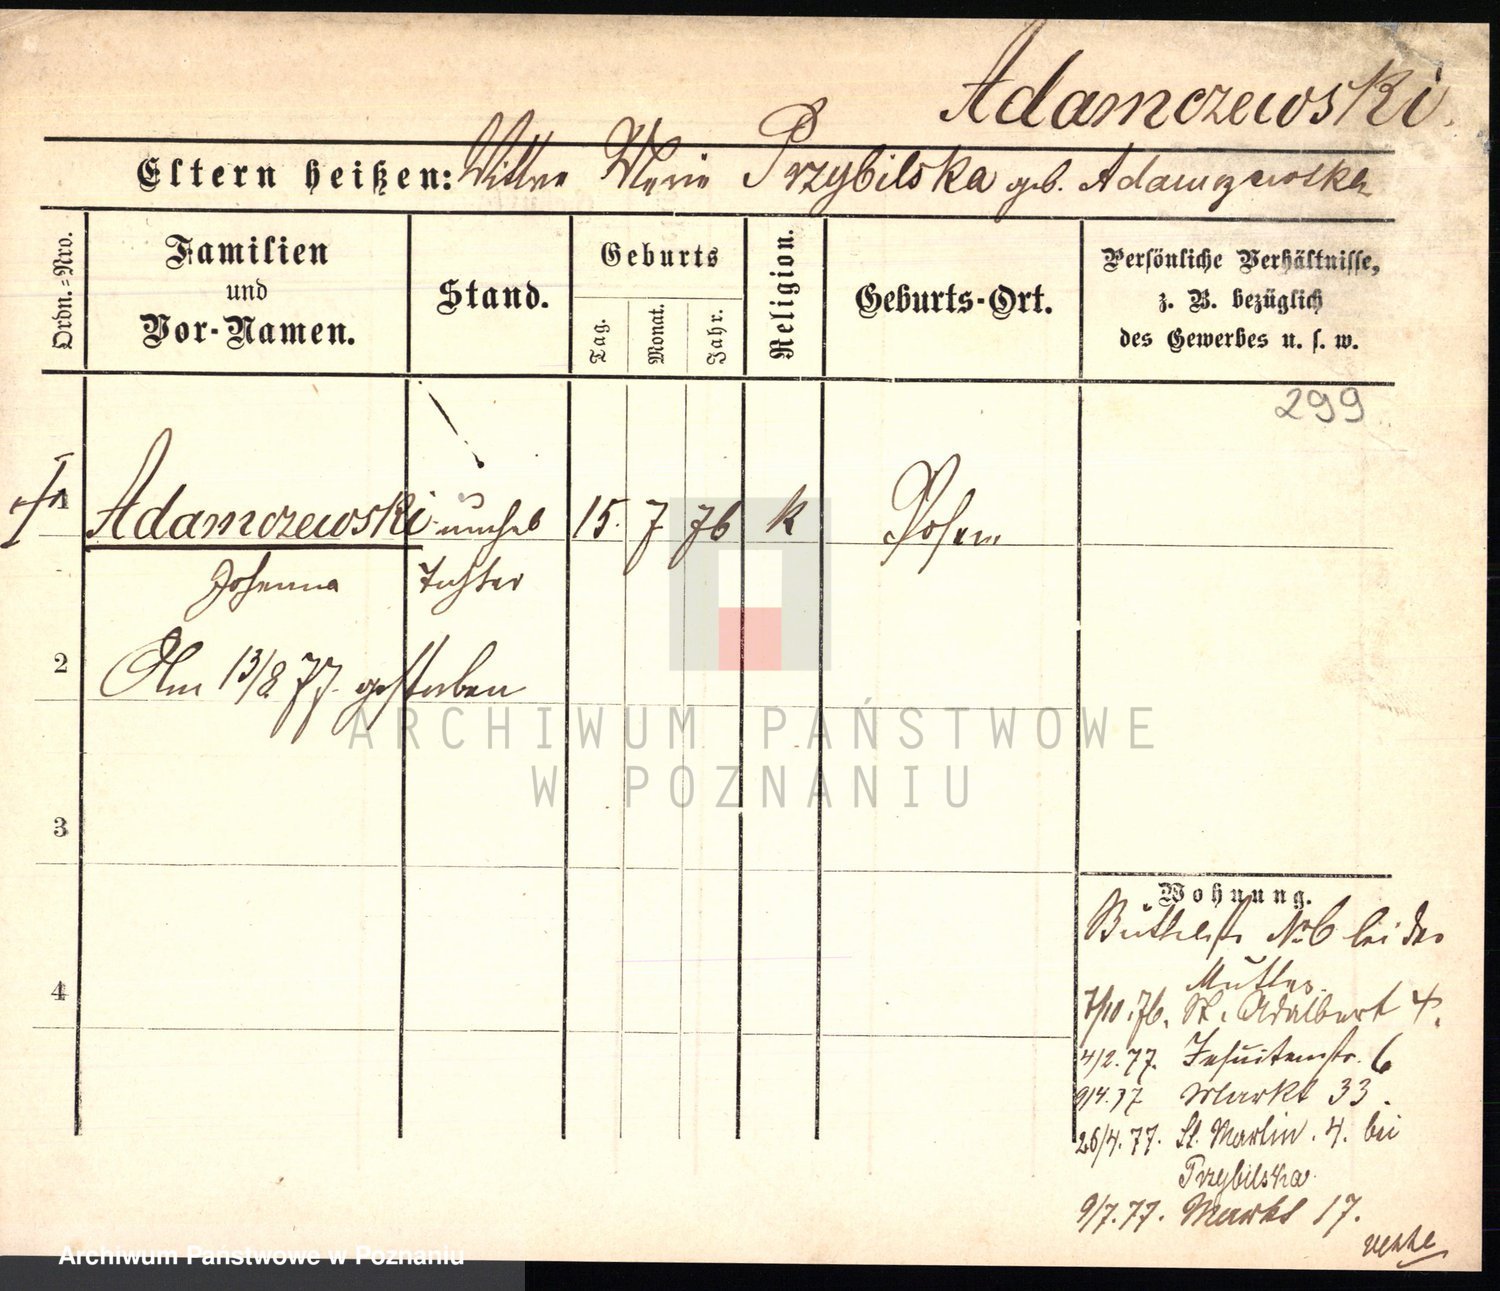 Adamczewski.
Eltern heißen: Wittwe Marie Przybilska geb. Adamczewska
Ordn.=Nro.
Familien
und
Vor-Namen.
Stand.
Geburts
Tag.
Monat.
Jahr.
Religion.
Geburts-Ort.
Persönliche Verhältnisse,
z. B. bezüglich
des Gewerbes u. s. w.
299
1
Adamczewski unehel 15. 7 76 k Posen
Johanna Tochter
2
Am 13/8 77. gestorben
3
4
Wohnung.
Büttelstr No 6 bei der
Mutter.
7/10.76. St. Adalbert 4.
4/2.77. Jesuitenstr. 6
9/4.77 Markt 33.
26/4.77. St. Martin. 4. bei
Przybilska
9/7.77. Markt 17.
ARCHIWUM PAŃSTWOWE
W POZNANIU
Archiwum Państwowe w Poznaniu